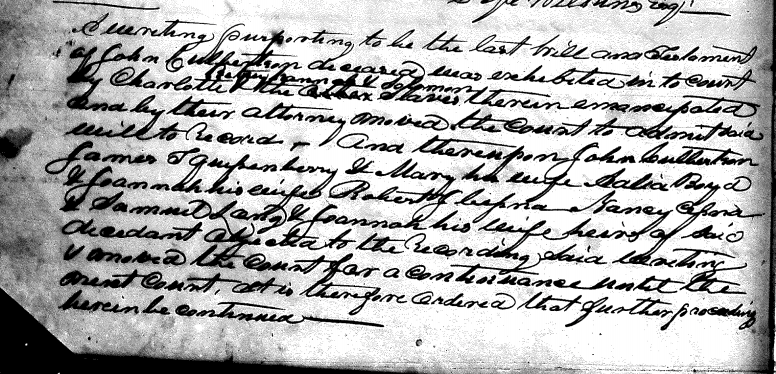 A writing purporting to be the last Will and Testament
of John Culbertson deceased was exhibited into Court
Hannah & Solomon
by Charlotte & the other slaves therein emancipated
and by their attorney moved the Court to admit said
will to record - And thereupon John Culbertson
James T Quisenberry & Mary his wife Boyd
& Joannah his wife Robert Nancy
& Samuel Lang & Joannah his wife heirs of said
decedant objected to the recording said writing
& moved the Court for a continuance until the
next Court. It is therefore ordered that further proceeding
herein be continued